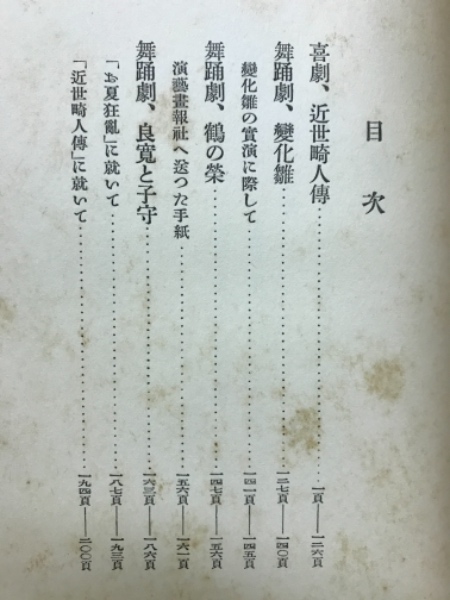 目次
喜劇、近世畸人傳……一頁——一二六頁
舞踊劇、變化雛……一二七頁——一四〇頁
變化雛の實演に際して……一四一頁——一四五頁
舞踊劇、鶴の榮……一四七頁——一五六頁
演藝畫報社へ送つた手紙……一五六頁——一六一頁
舞踊劇、良寛と子守……一六三頁——一八六頁
「お夏狂亂」に就いて……一八七頁——一九三頁
「近世畸人傳」に就いて……一九四頁——二〇〇頁